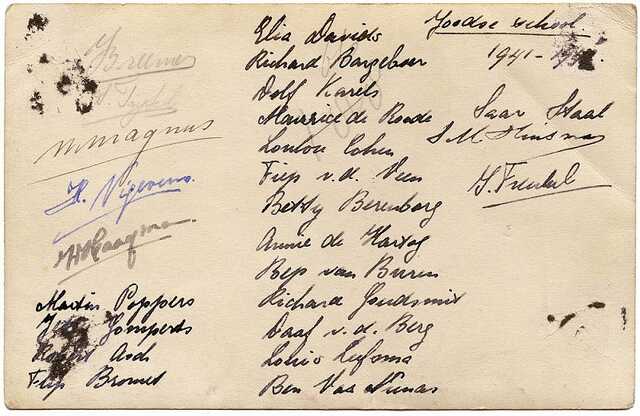 Joodse school
1941-
Elia Davids
Richard Barzebeer
Dolf Karels
Maurice de Roode
Loulou Cohen
Fiep v.d. Veen
Betty Berenborg
Annie de Hartog
Bep van Buren
Richard Goudsmit
Daaf v.d. Berg
Louis
Ben Vas Nunes
Saar Staal
S.M.
S. Frenkel
M. Magnus
H. Nijeveens
Martin Poppers
Gomperts
Robert Asch
Flip Bromet